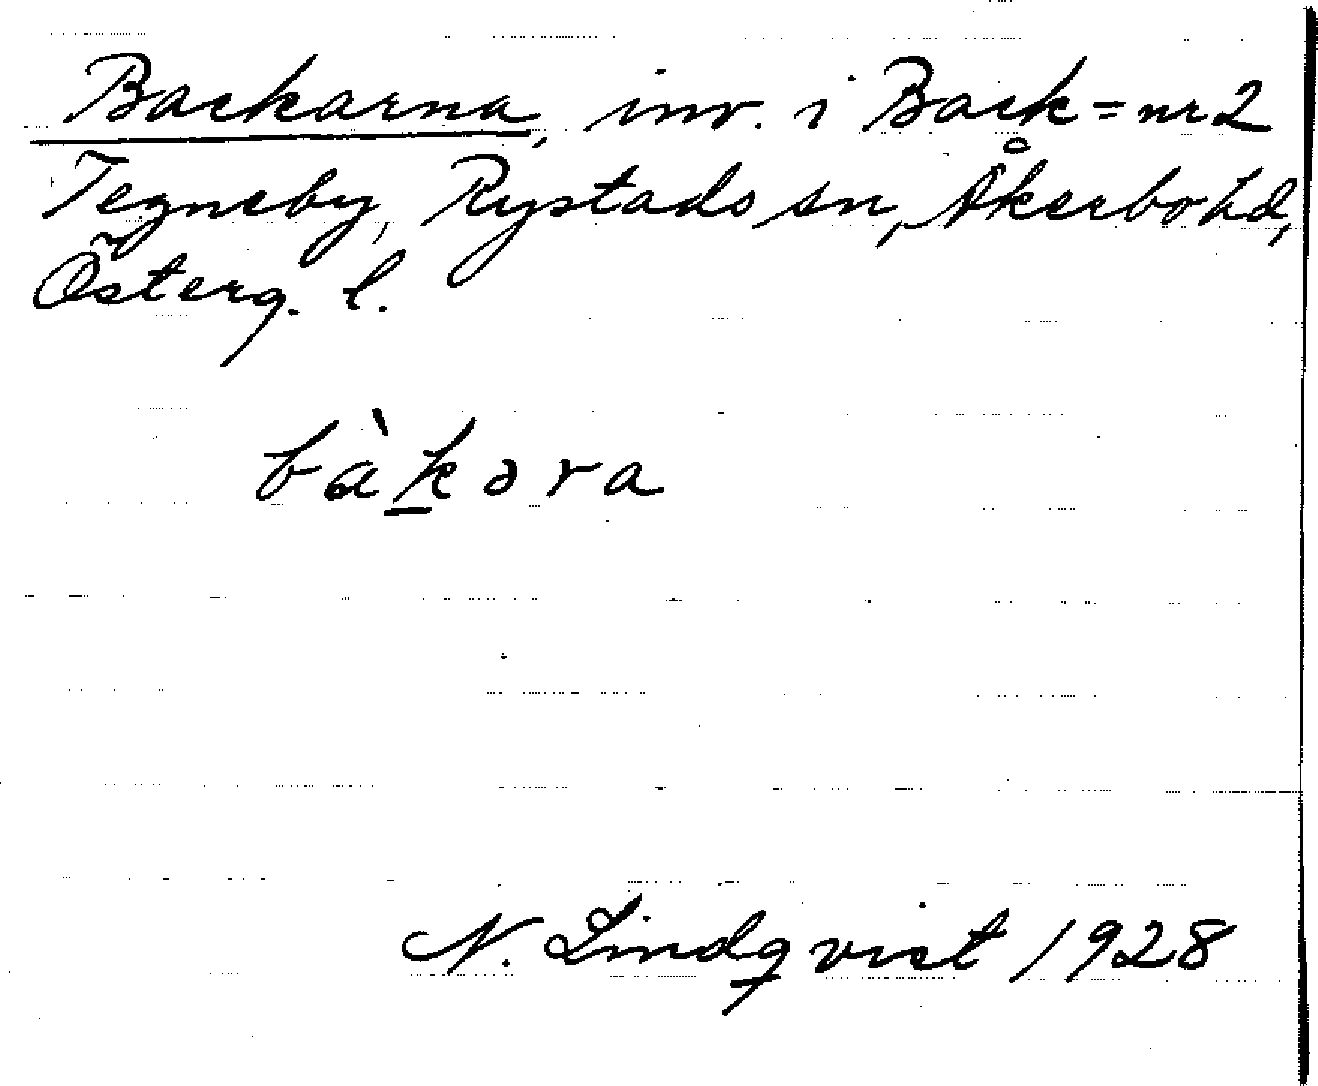 Backarna, inv. i Back = nr 2
Tegneby, Rystads sn, Åkerbo hd,
Österg. l.
bàk̲əra
N. Lindqvist 1928